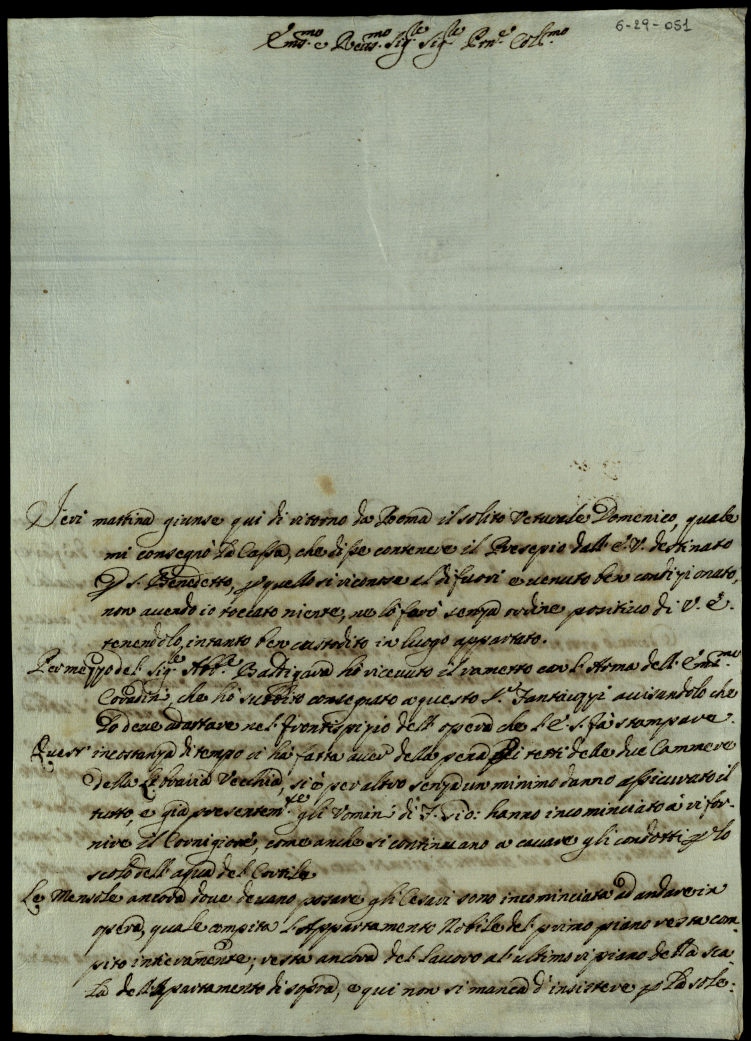 6-29-051
Em.mo e Reu.mo Sig.re Sig.re Prn.e Coll.mo
Jeri mattina giunse qui di ritorno da Roma il solito Veturale Domenico, quale
mi consegnò la Cassa, che disse contenere il Presepio dall' E. V. destinato
S. Benedetto, quello si riconosce al di fuori e uenuto ben condizionato,
non auendo io toccato niente, ne lo farò senza ordine positiuo di V. E.
tenendolo intanto ben custodito in luogo appartato.
Per mezzo del Sig.re Abb.e Bastigara hò riceuuto il rametto con l'Arma dell' Em.mo
Coradini, che hò subbito consegnato a questo Fantauzzi auisandolo che
lo deue adattare nel frontispizio dell' opera che l' E. S. fà stampare.
Quest' incostanza di tempo ci hà fatta auer della pena li tetti delle due Cammere
della Libraria Vecchia, si è per altro senza un minimo danno assicurato il
tutto, e già presentem.te gli Vomini di S. hanno incominciato à rifor-
nire il Cornigione, come anche si continuano a cauare gli condotti p lo
scolo dell' aqua del Cortile
Le Mensole ancora doue deuano posare gli Cesari sono incominciata ad andare in
opera, quale compita l'Appartamento Nobile del primo piano resta com-
pito intieramente; resta ancora del Lauoro al ultimo ripiano della sca-
la dell'Appartamento di sopra, e qui non si manca d' insistere p la sole-